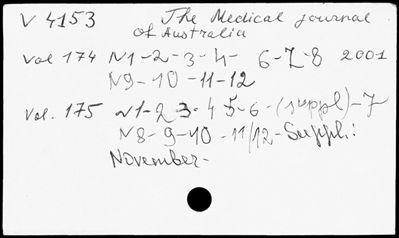 V 4153 The Medical journal
of Australia
Vol 174 N1-2-3-4- 6-7-8 2001
N9-10-11-12
Vol. 175 N1-2-3-4 5-6-(suppl)-7
N8-9-10-11/12-Suppl:
November-